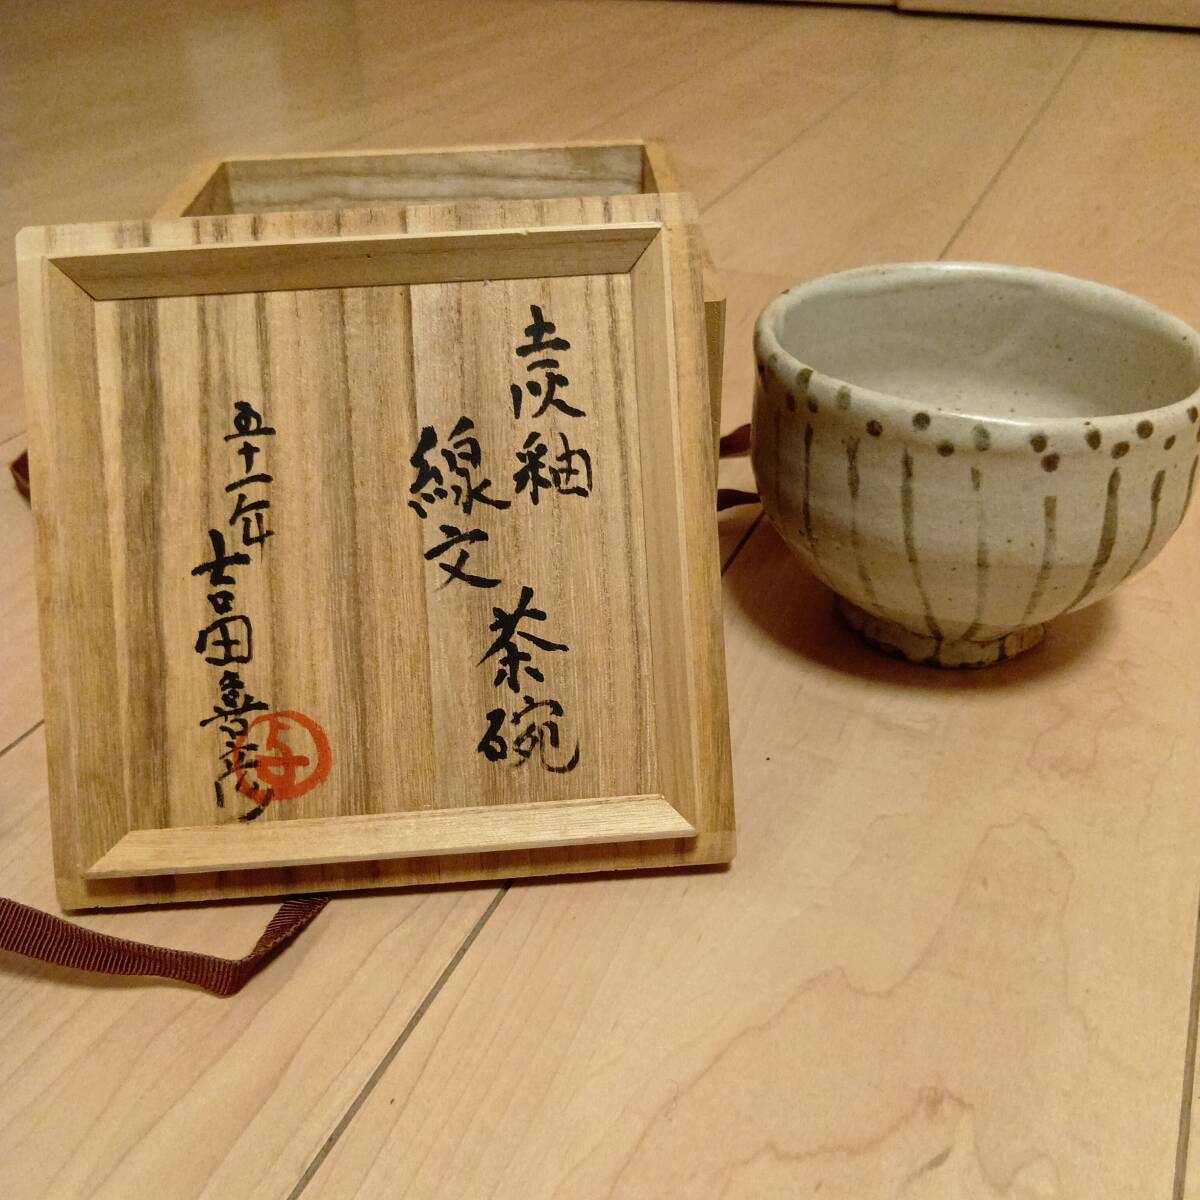 土灰釉
線文
茶碗
五十一年
吉田喜彦